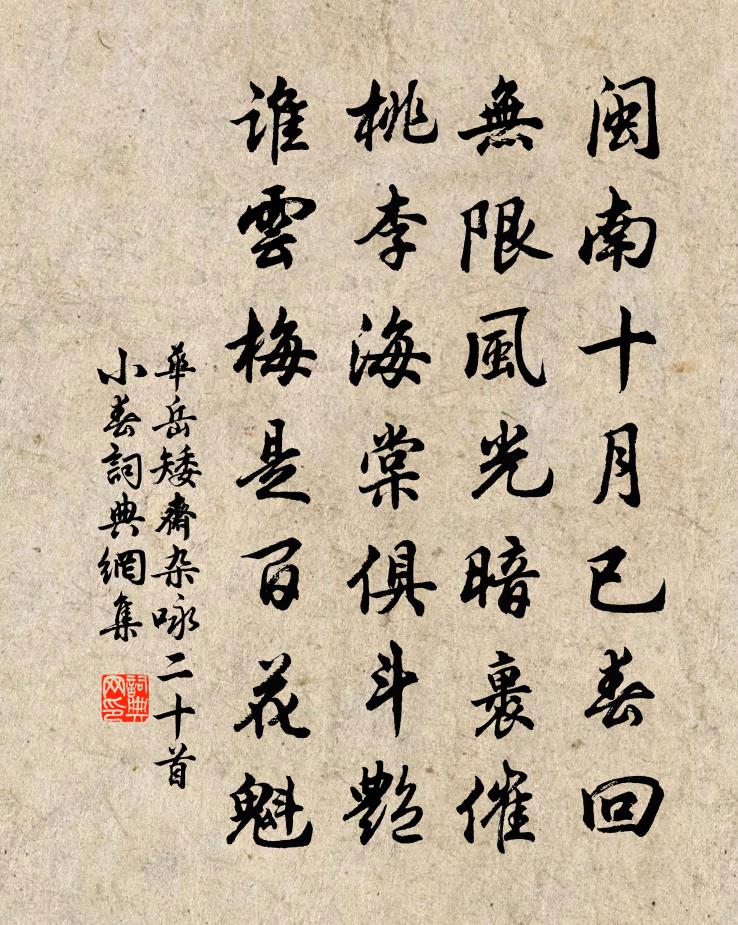 閩南十月已春回
無限風光暗裏催
桃李海棠俱斗艷
誰雲梅是百花魁
華岳矮齋杂咏二十首
小春詞典網集
詞典網印